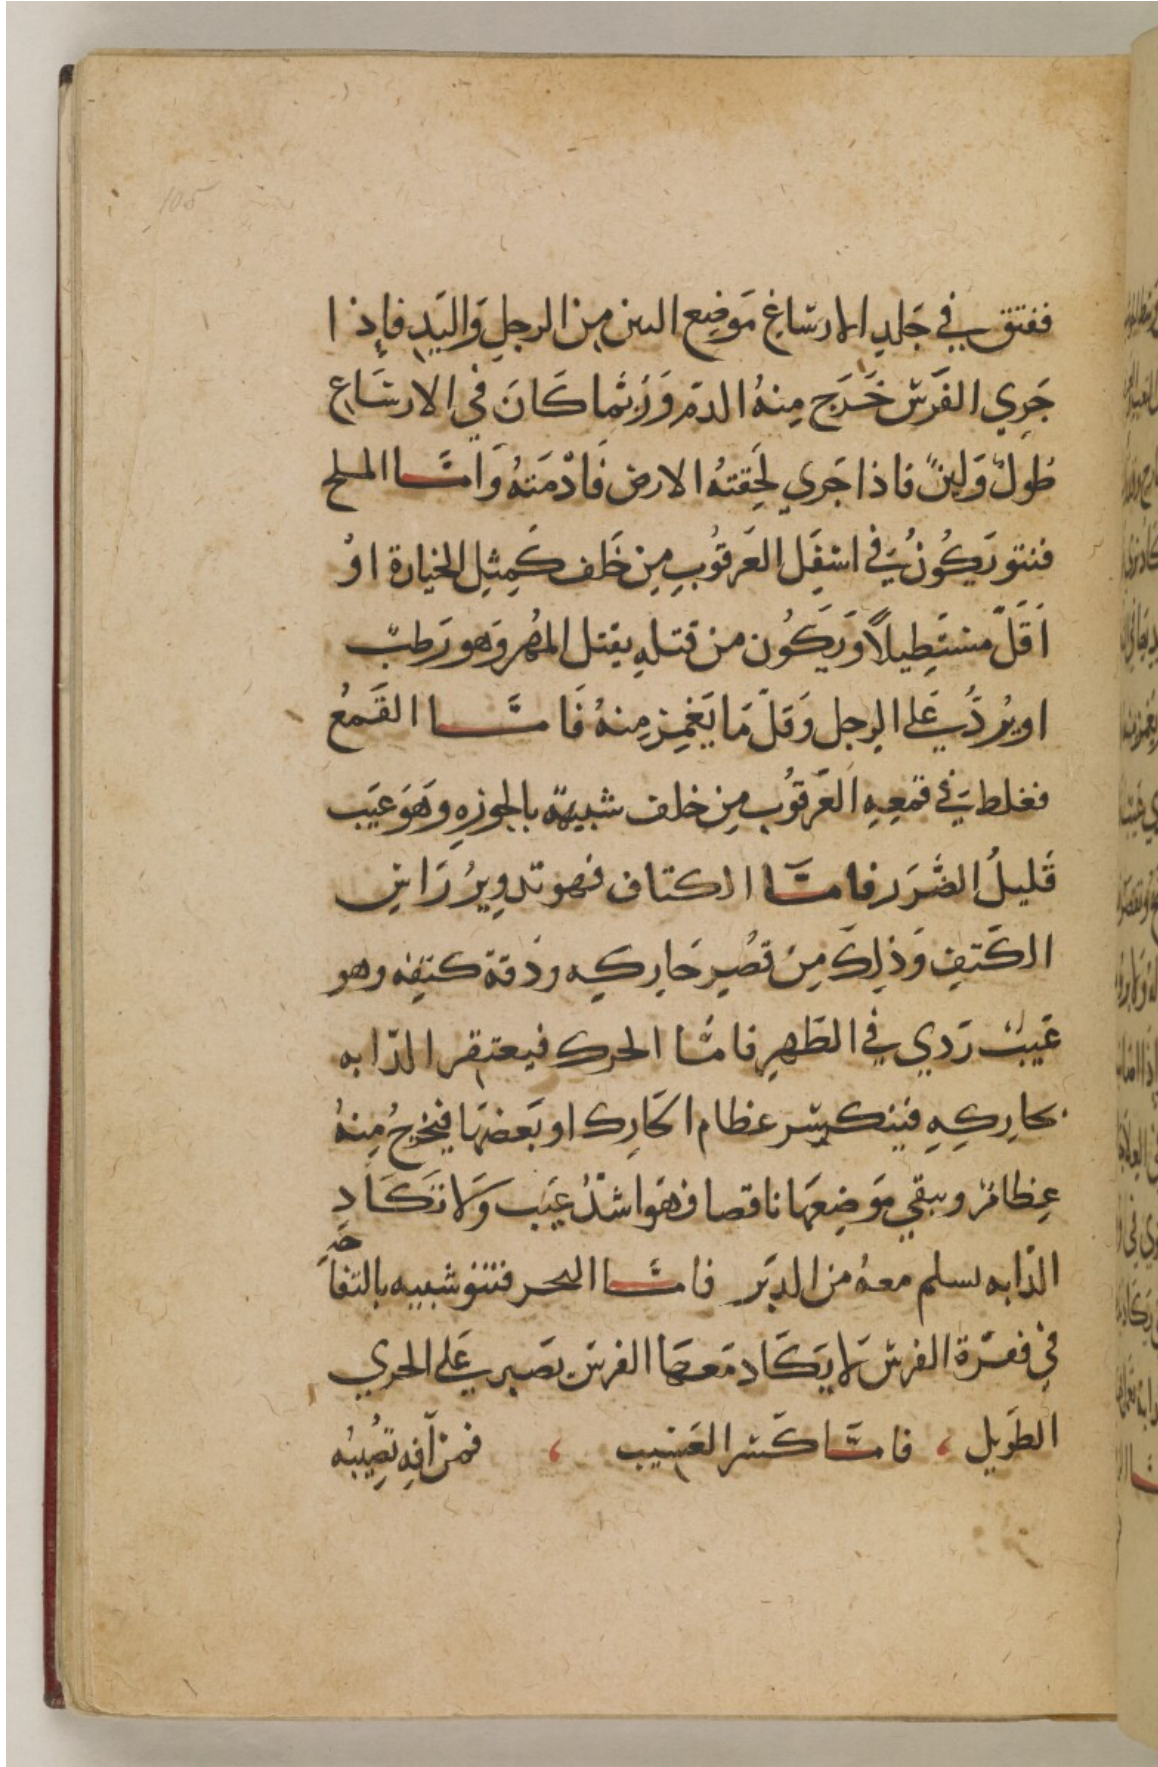 105
ففتق في جَلدِ الارسَاغِ مَوضِع الثنن مِن الرجلِ وَاليَدِ فاِذا
جَرِي الفَرس خَرَج مِنهُ الدمّ وَرُبّما كَانَ في الارسَاغ
طُولٌ وَلينٌ فاذا جَري لَحِقتهُ الارض فَادْمَتهُ وَامَّا الملح
فنتو يَكُونُ في اسْفِلَ العَرقُوبِ مِن خَلف كَمِثلِ الخيارة اوْ
اَقَلّ مستَطِيلاً وَيَكُون من فتلهِ يفتل المهُر وَهو رَطبٌ
او يُردُّ عَلى الرِجل وَقلّ مَا يَغمِز مِنهُ فَامَّا القَمعُ
فغلط في قمعِهِ العَرقُوب مِن خلف شبيهة بالجوزهِ وَهوَ عَيَب
قَليلُ الضَّرَر فامَّا الكتاف فهو تدوِيرُ رَاسِ
الكَتِفِ وَذلِكَ مِن قصُرِ حَارِكِهِ وَدقة كتفِه وهو
عَيبٌ رَدي في الظَهرِ فامَّا الحرك فيعتقر الدّابه
بحارِكِهِ فينكسِر عظام الحَارِك او بَعضهَا فيخرجُ مِنهُ
عِظامٌ ويبقي مَوضِعهَا ناقصا فهوَ اشدُّ عَيَب وَلاَ تكَادِ
الدّابه تسلم معهُ من الدبَر فامَّا البحر فنتو شبيه بالتفاحَهِ
في فقرة الفرس لا يَكَاد مَعهَا الفرس يصَبر عَلى الجري
الطَويل ، فامَّا كَسر العَسِيب ، فمن آفهِ تصُيبُه